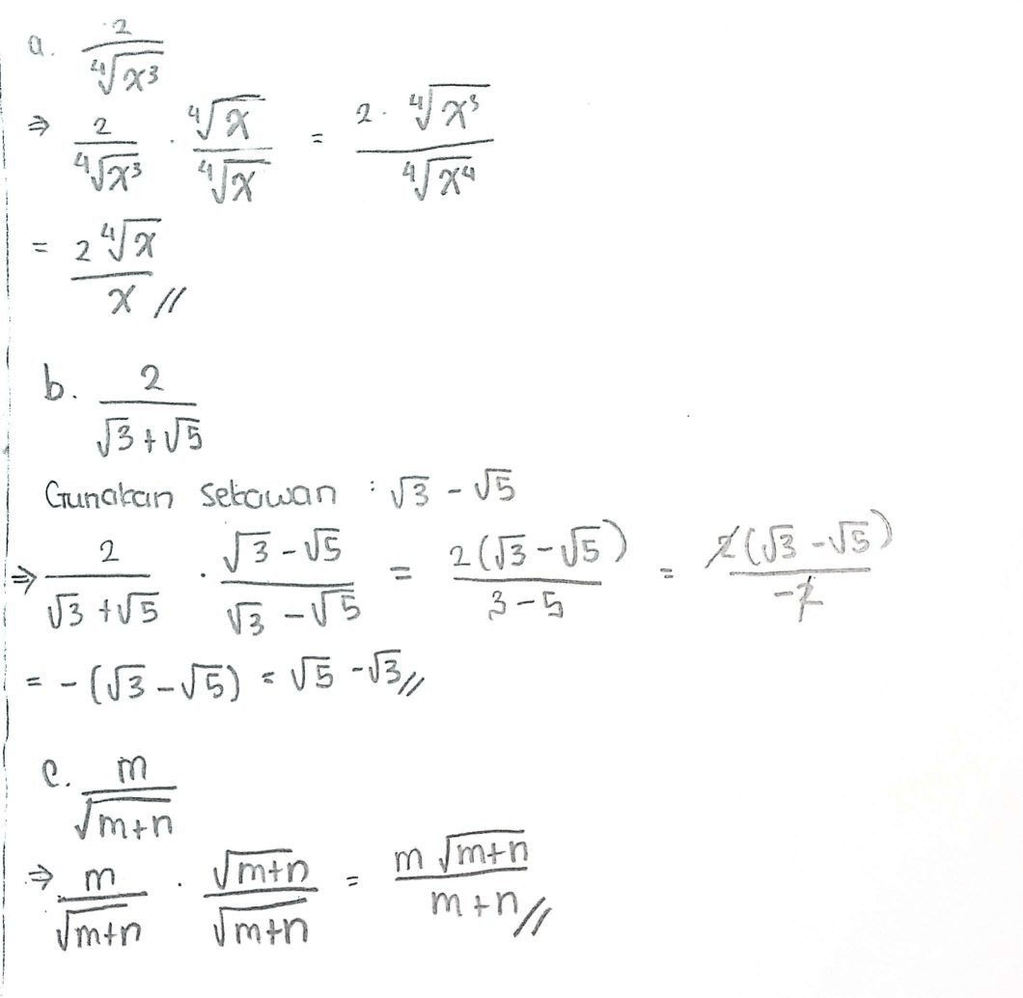 a. 2/⁴√x³
⇒ 2/⁴√x³ · ⁴√x/⁴√x = 2·⁴√x³/⁴√x⁴
= 2⁴√x/x //
b. 2/(√3+√5)
Gunakan sekawan : √3 - √5
⇒ 2/(√3+√5) · (√3-√5)/(√3-√5) = 2(√3-√5)/(3-5) = 2(√3-√5)/-2
= -(√3-√5) = √5-√3 //
c. m/√(m+n)
⇒ m/√(m+n) · √(m+n)/√(m+n) = m√(m+n)/(m+n) //